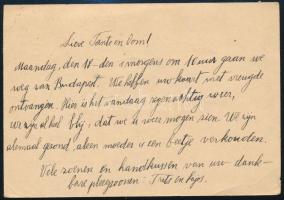 Lieve Tante en Oom!
Maandag, den 18-den 's morgens om 10 uur gaan we
weg van Budapest. We hebben uw kaart met vreugde
ontvangen. Hier is het vandaag regenachtig weer,
we zijn al heel blij, dat we u weer mogen zien. We zijn
allemaal gezond, alleen moeder is een beetje verkouden.
Vele zoenen en handkussen van uw dank-
bare pleegzonen